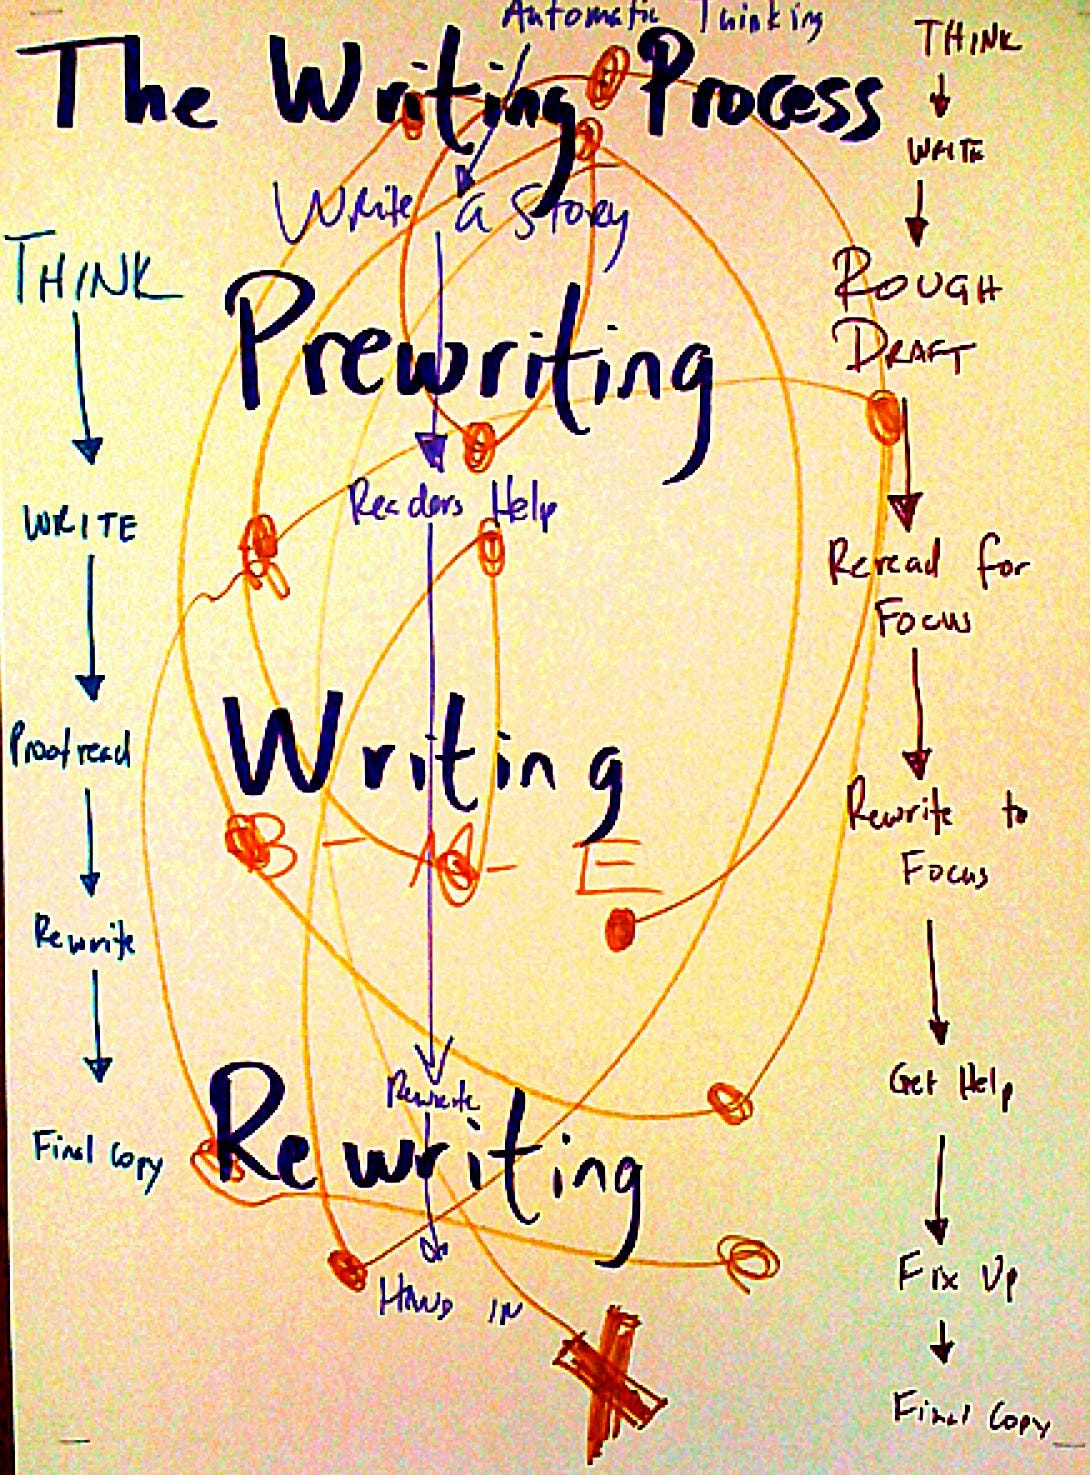 Automatic Thinking
The Writing Process
Write a Story
Prewriting
Readers Help
Writing
B - A - E
Rewrite
Rewriting
Hand in
THINK
WRITE
Proofread
Rewrite
Final Copy
THINK
WRITE
ROUGH
DRAFT
Reread for
Focus
Rewrite to
Focus
Get Help
Fix Up
Final Copy